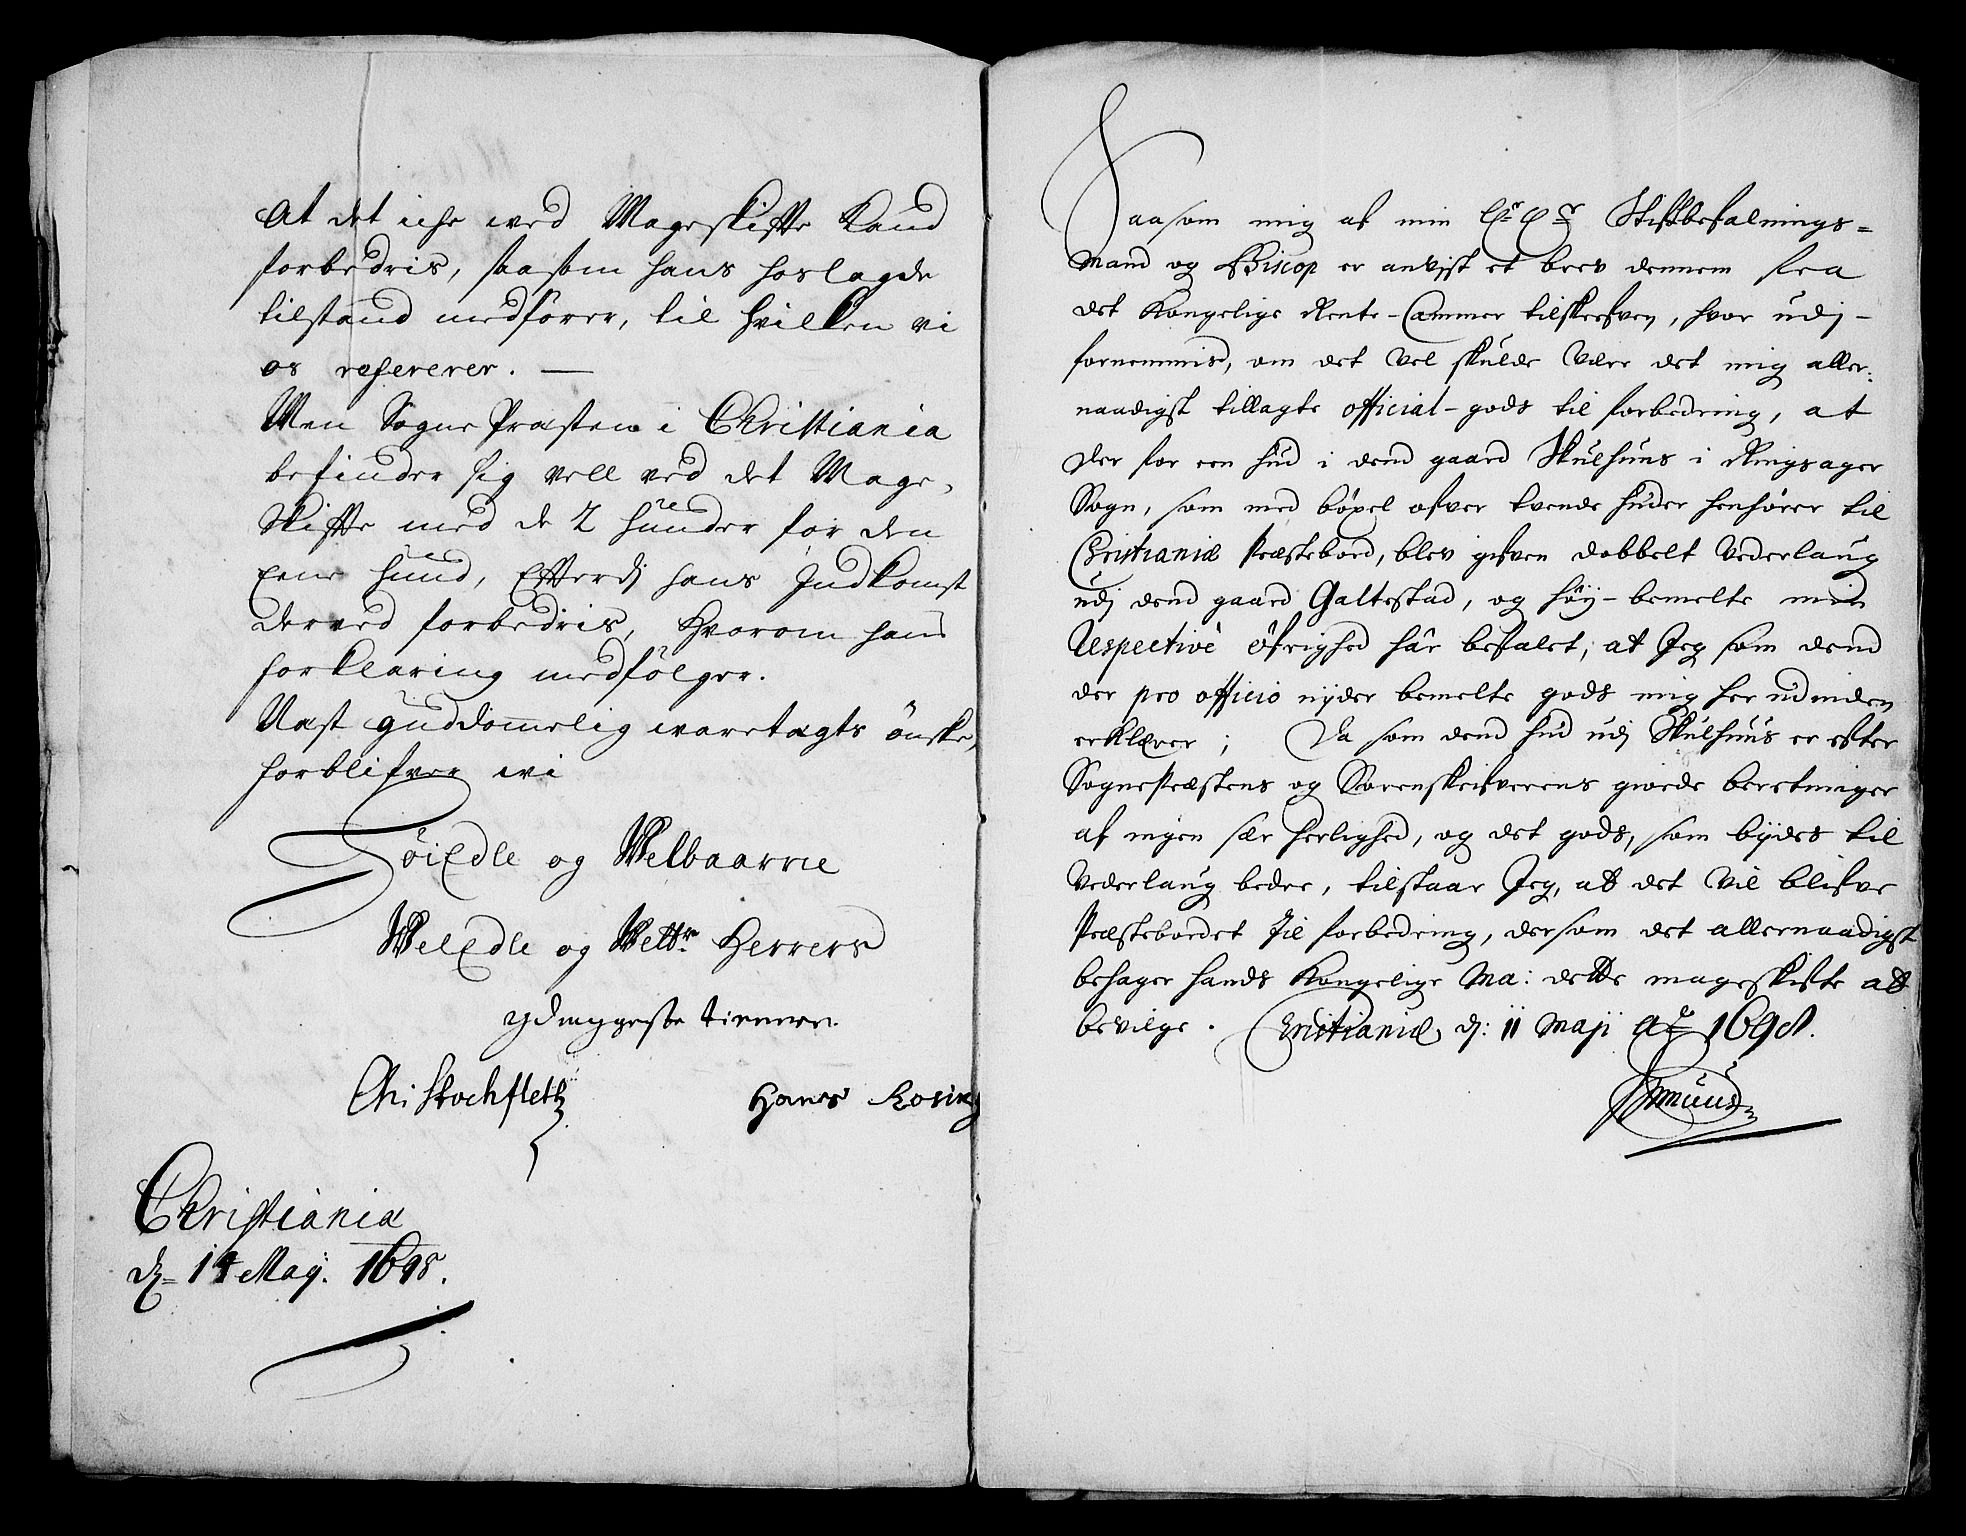 At det iche wed Mageskifte kand
forbedris, saasom hans hoslagde
tilstand medfører, til hvilken vi
os refererer. —
Men Sogne Præsten i Christiania
befinder sig vell ved det Mage-
skifte med de 2 huuder for den
Eene huud, Efterdj hans Indkomst
derved forbedris, Hvorom hans
forklaring medfølger.
Næst guddommelig waretægts önske,
forblifver wi
HöiEdle og Welbaarne
WelEdle og Weltb. Herrers
ydmygeste tienner.
Chr: Stockfleth
Hans Rosing
Christiania
d. 14 Maij. 1698.
Saasom mig af min Stiftbefalnings=
Mand og Biscop er anvjst et brev dennem fra
det Kongelige Rente-Cammer tilskrefven, hvor udj
fornemmis, om det vel skulde være det mig aller:
naadigst tillagte official-gods til forbedring, at
der for een hud i dend gaard Skulhuus i Ringsager
Sogn, som med böxel ofver tvende huder henhører til
Christianiæ Præstebord, blev gifven dobbelt Vederlaug
udj dend gaard Galtestad, og høÿ-bemelte min
Respective öfrighed här befalet, at Jeg som dend
der pro officio nyder bemelte gods mig her udinden
erklærer; Da som dend hud udj Skulhuus er efter
Sognepræstens og Sorenskrifverens giorde beretninger
af ingen sær herlighed, og det gods, som bÿdes til
Vederlaug bedre, tilstaar Jeg, att det vil blifve
Præstebordet til forbedring, dersom det allernaadigst
behager hands Kongelige Ma: dette mageskifte att
bevilge. Christianiæ d: 11 Maji Ao 1698.
Munch